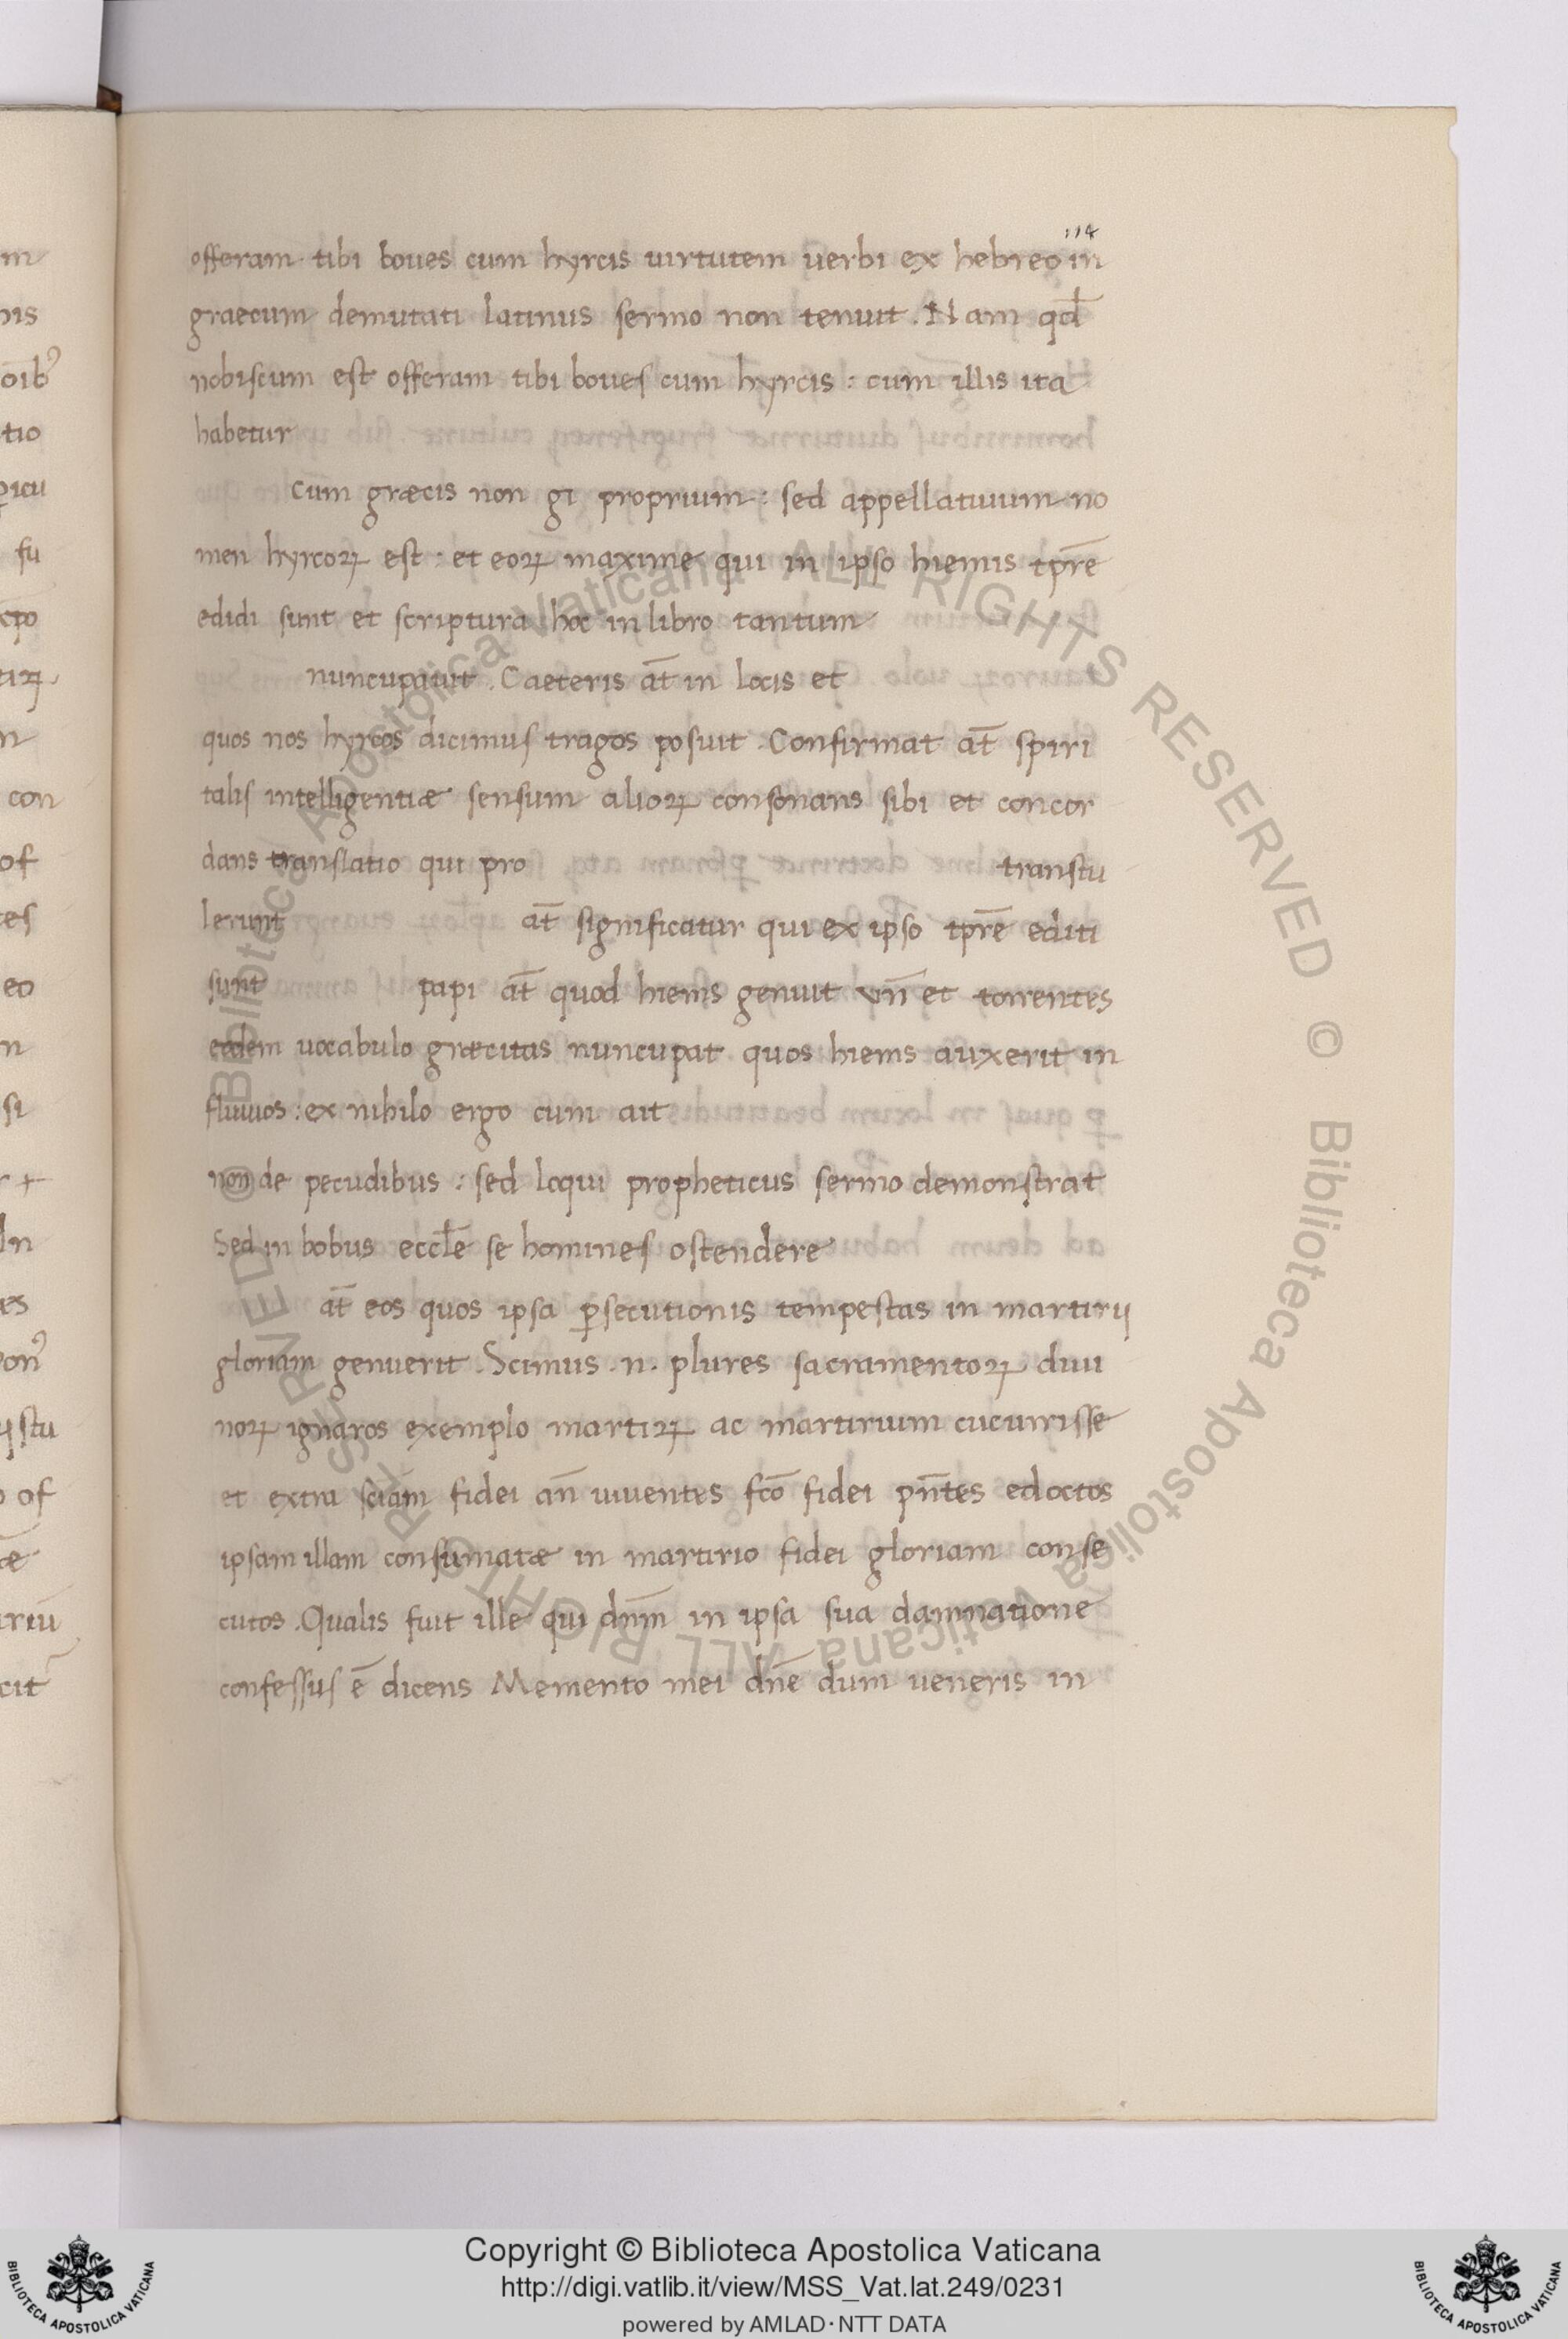 114
offeram tibi boues cum hyrcis uirtutem uerbi ex hebreo in
graecum demutati latinus sermo non tenuit . Nam qđ
nobiscum est offeram tibi boues cum hyrcis : cum illis ita
habetur
Cum græcis non gi proprium : sed appellatiuum no
men hyrcoꝝ est : et eoꝝ maxime qui in ipso hiemis tpr̄e
edidi sunt et scriptura hoc in libro tantum
nuncupauit . Caeteris at̄ in locis et
quos nos hyrcos dicimus tragos posuit . Confirmat at̄ spiri
talis intelligentiæ sensum alioꝝ consonans sibi et concor
dans translatio qui pro transtu
lerunt at̄ significatur qui ex ipso tpr̄e editi
sunt papi at̄ quod hiems genuit vn̄ et torrentes
eodem uocabulo græcitas nuncupat quos hiems auxerit in
fluuios : ex nihilo ergo cum ait
non de pecudibus : sed loqui propheticus sermo demonstrat
Sed in bobus eccl̄e se homines ostendere
at̄ eos quos ipsa ꝑsecutionis tempestas in martirij
gloriam genuerit . Scimus .n. plures sacramentoꝝ diui
noꝝ ignaros exemplo martiꝝ ac martirium cucurrisse
et extra sciam̄ fidei an̄ uiuentes fcō fidei pn̄tes edoctos
ipsam illam consumatæ in martirio fidei gloriam conse
cutos . Qualis fuit ille qui dnm̄ in ipsa sua damnatione
confessus ē dicens Memento mei dn̄e dum ueneris in
Biblioteca Apostolica Vaticana ALL RIGHTS RESERVED © Biblioteca Apostolica Vaticana ALL RIGHTS RESERVED ©
Copyright © Biblioteca Apostolica Vaticana
http://digi.vatlib.it/view/MSS_Vat.lat.249/0231
powered by AMLAD·NTT DATA
BIBLIOTECA APOSTOLICA VATICANA
BIBLIOTECA APOSTOLICA VATICANA